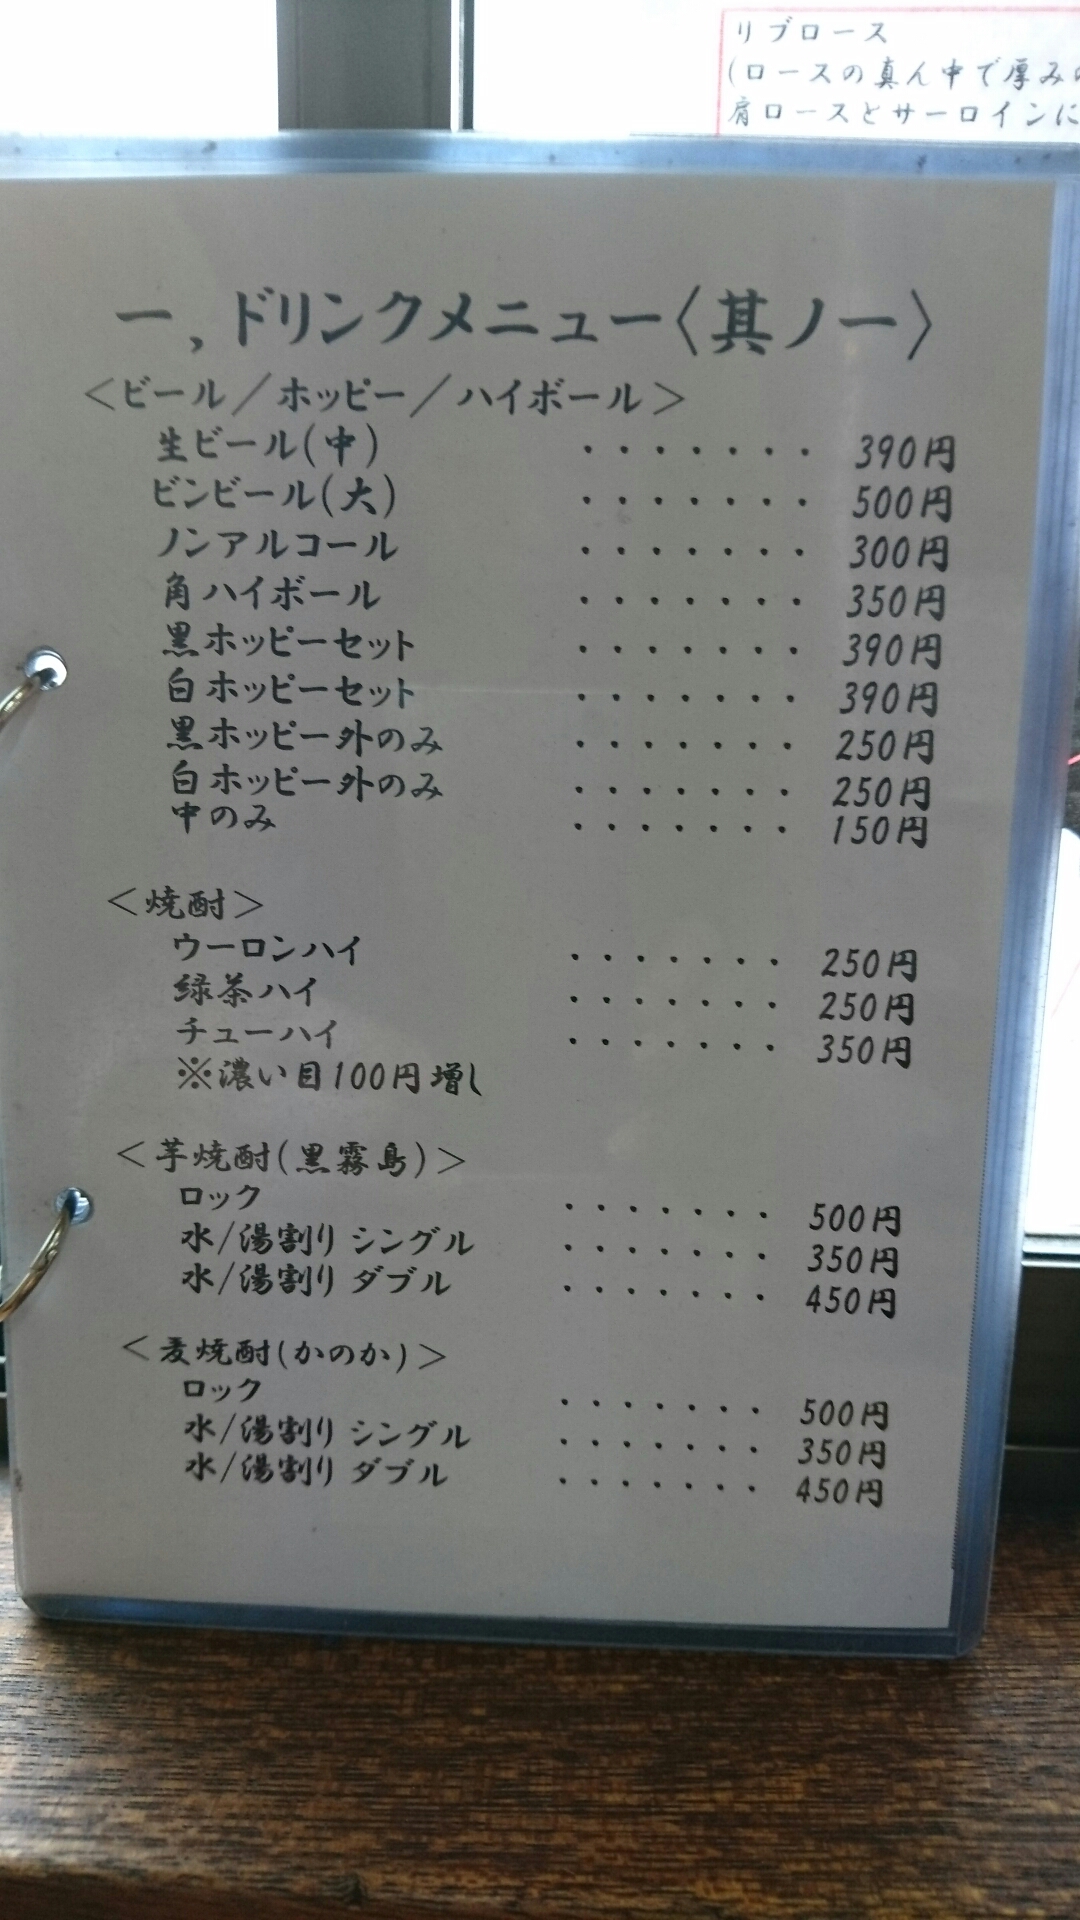 リブロース
(ロースの真ん中で厚みの
肩ロースとサーロインに
一，ドリンクメニュー〈其ノ一〉
＜ビール／ホッピー／ハイボール＞
生ビール(中) ・・・・・・・ 390円
ビンビール(大) ・・・・・・・ 500円
ノンアルコール ・・・・・・・ 300円
角ハイボール ・・・・・・・ 350円
黒ホッピーセット ・・・・・・・ 390円
白ホッピーセット ・・・・・・・ 390円
黒ホッピー外のみ ・・・・・・・ 250円
白ホッピー外のみ ・・・・・・・ 250円
中のみ ・・・・・・・ 150円
＜焼酎＞
ウーロンハイ ・・・・・・・ 250円
緑茶ハイ ・・・・・・・ 250円
チューハイ ・・・・・・・ 350円
※濃い目100円増し
＜芋焼酎(黒霧島)＞
ロック ・・・・・・・ 500円
水/湯割り シングル ・・・・・・・ 350円
水/湯割り ダブル ・・・・・・・ 450円
＜麦焼酎(かのか)＞
ロック ・・・・・・・ 500円
水/湯割り シングル ・・・・・・・ 350円
水/湯割り ダブル ・・・・・・・ 450円